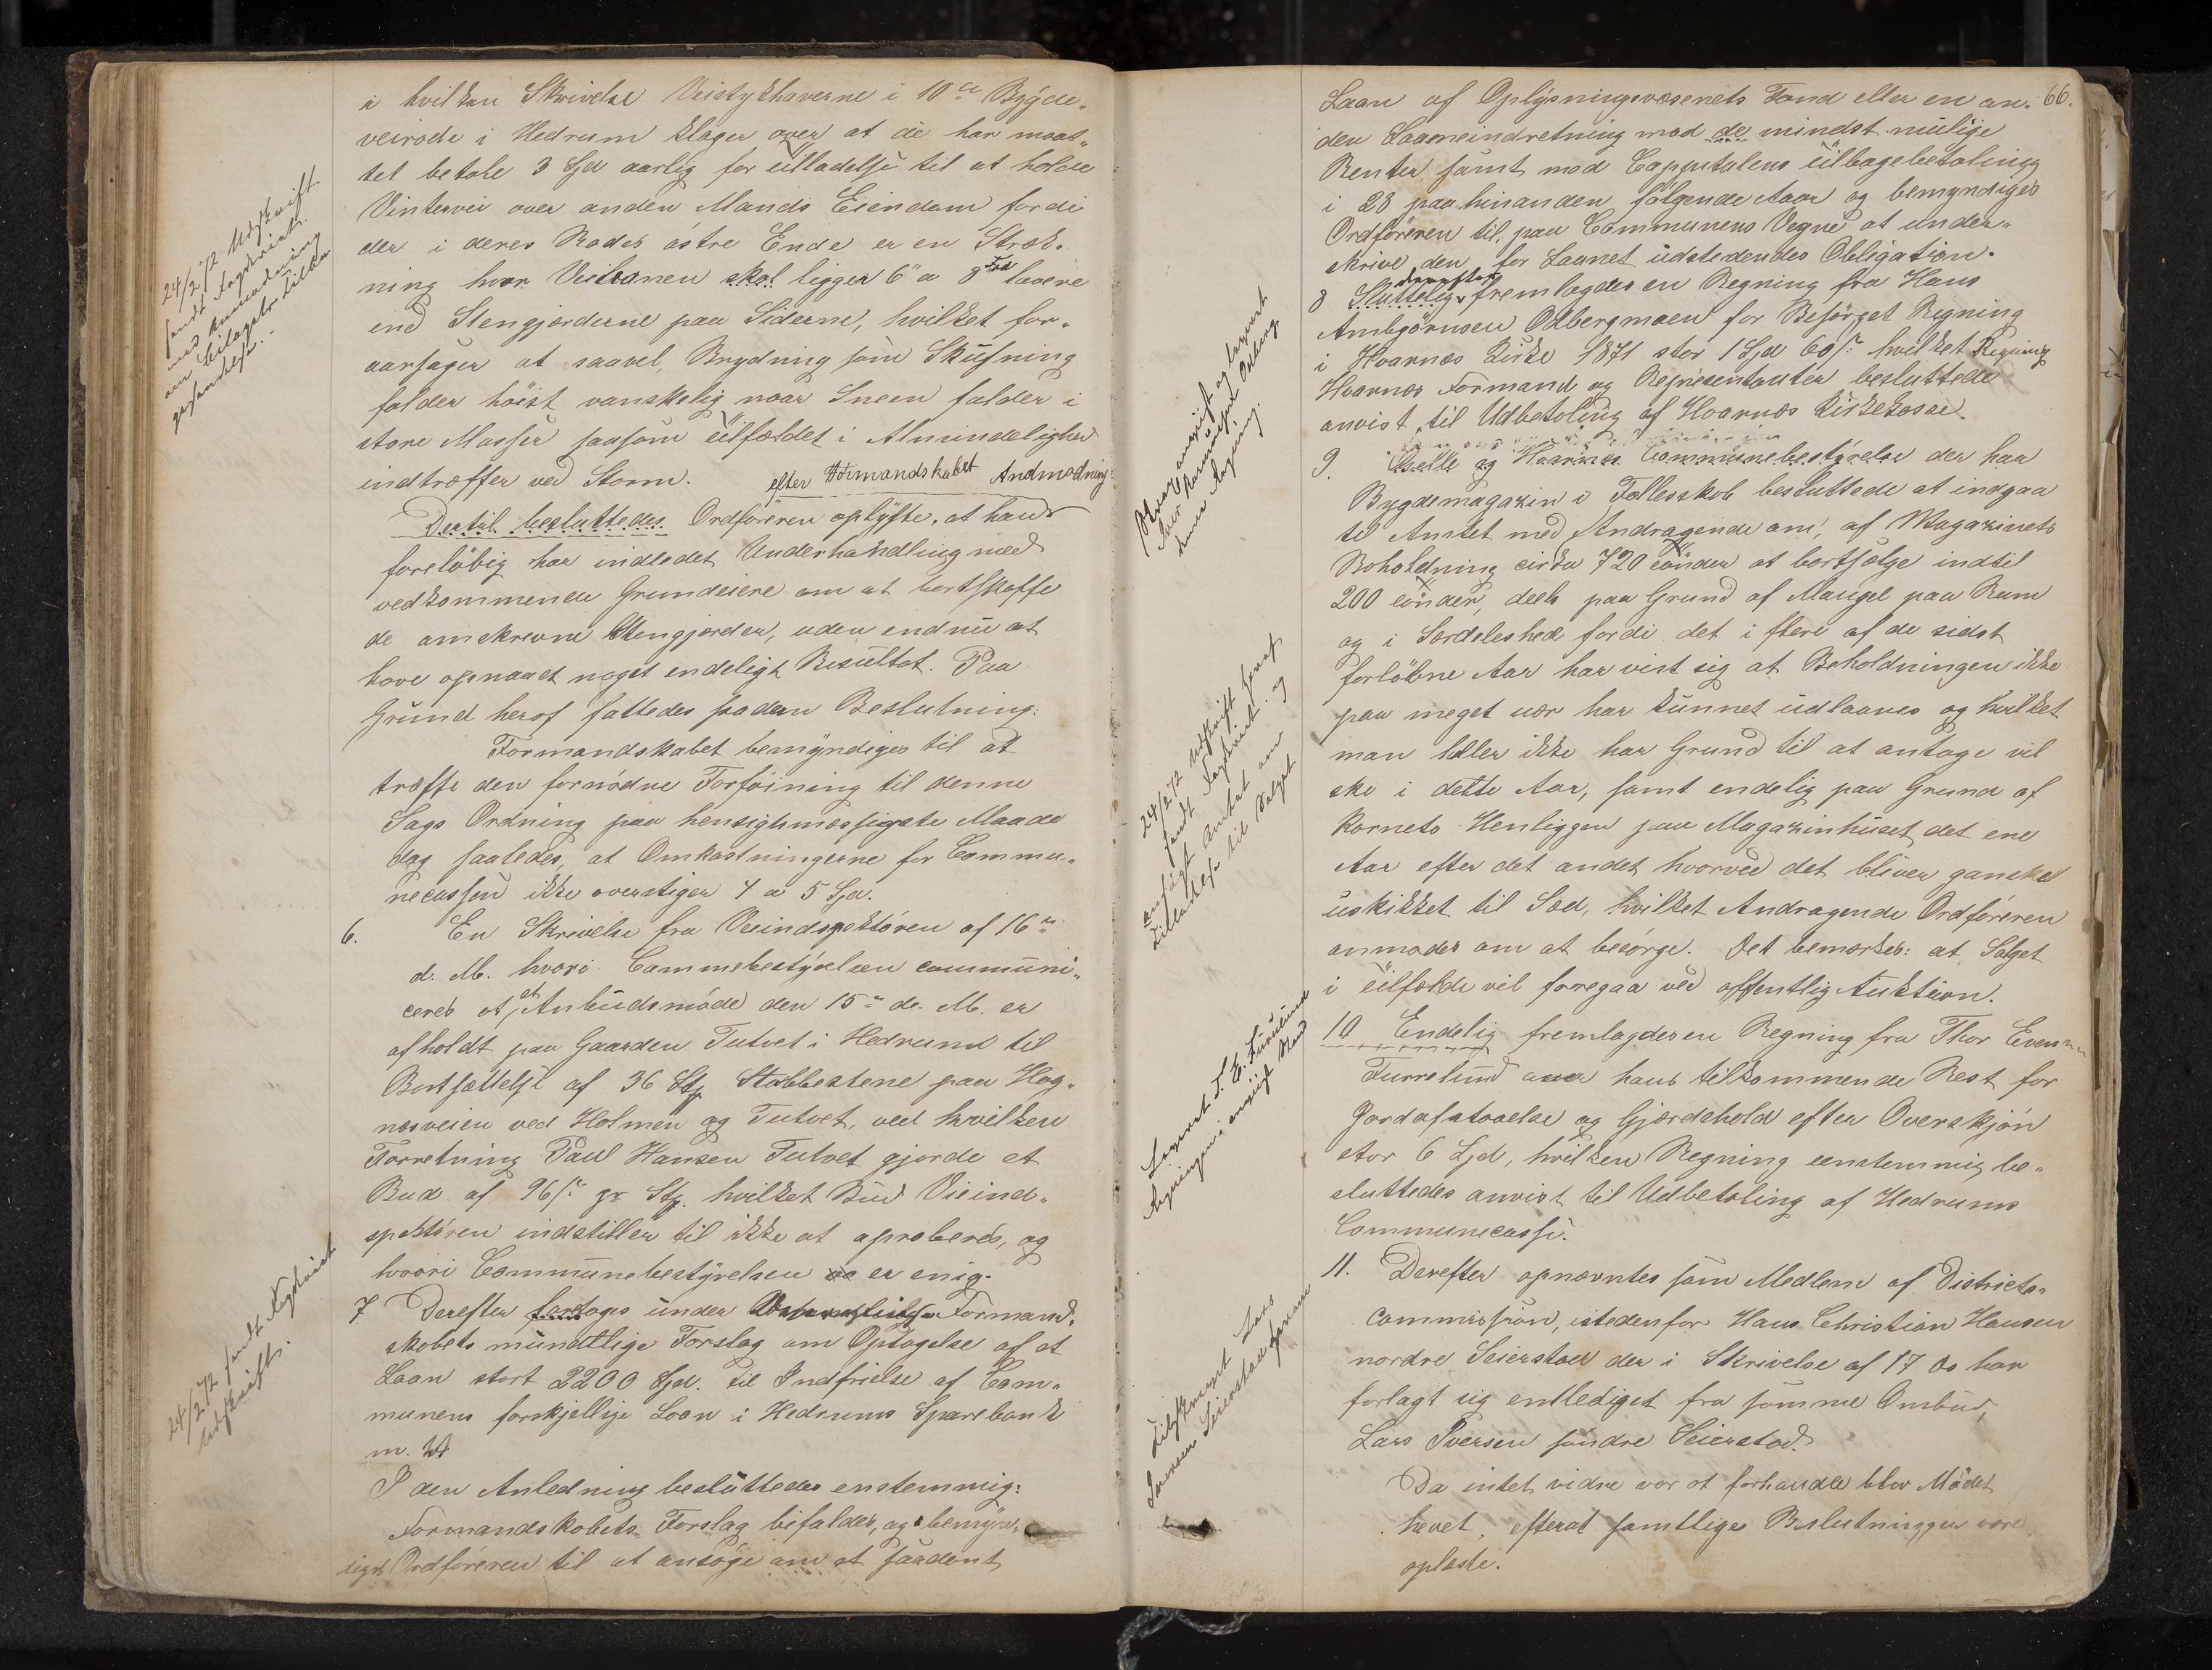 i hvilken Skrivelse Veistykhaverne i 10de Bygde-
veirode i Hedrum klager over at de har maat-
tet betale 3 Spd aarlig for tilladelse til at holde
Vintervei over anden Mands Eiendom fordi
der i deres Rodes østre Ende er en Stræk-
ning hvor Veibanen skal ligger 6 a 8 Fod lavere
end Stengjærderne paa Siderne, hvilket for-
aarsager at saavel Brydning som Skufning
falder høist vanskelig naar Sneen falder i
store Masser saasom tilfældet i Almindelighed
indtræffer ved Storm.
efter Formandskabet Andmodning
Dertil besluttedes Ordføreren oplyste, at han
foreløbig har indledet Underhandling med
vedkommende Grundeiere om at bortskaffe
de omskrevne Stengjærder, uden endnu at
have opnaaet noget endeligt Resultat. Paa
Grund heraf fattedes saadan Beslutning:
Formandskabet bemyndiges til at
træffe den fornødne Forføining til denne
Sags Ordning paa hensigtsmæssigste Maade
dog saaledes, at Omkostningerne for Commu-
necassen ikke overstiger 4 a 5 Spd.
6. En Skrivelse fra Veiindspektøren af 16de
d. M. hvori Commebestyrelsen communi-
ceres at et Anbudsmøde den 15de d. M. er
afholdt paa Gaarden Tutvet i Hedrum til
Bortsættelse af 36 Stp Stabbestene paa Hag-
næsveien ved Holmen og Tutvet, ved hvilken
Forretning Paul Hansen Tutvet gjorde et
Bud af 96 s. pr Stp. hvilket Bud Veiind-
spektøren indstiller til ikke at aproberes, og
hvori Communebestyrelsen er enig.
7 Derefter foretoges under Formand-
skabets mundtlige Forslag om Optagelse af et
Laan stort 2200 Spd. til Indfrielse af Com-
munens forskjellige Laan i Hedrums Sparebank
m. V.
I den Anledning besluttedes enstemmig:
Formandskabets Forslag bifaldes, og bemyn-
diges Ordføreren til at ansøge om et saadent
24/2 72 Udskrift
sendt Fogderiet
med Anmodning
om Bilagets Tilba
gesendelse.
24/2 72 sendt Fogderiet
Udskrift.
66.
Laan af Oplysningsvæsenets Fond eller en an-
den Laaneindretning mod de mindst mulige
Renter samt mod Cappitalens tilbagebetaling
i 28 paa hinanden følgende Aar og bemyndiges
Ordføreren til, paa Communens Vegne at under-
skrive den for Laanet udstedendes Obligation.
derefter
8 Sluttelig fremlagdes en Regning fra Hans
Ambjørnsen Odbergmoen for Besørget Rigning
i Hvarnæs Kirke 1871 stor 1 Spd 60 s. hvilket Regning
Hvarnæs Formand og Representanter besluttede
anvist til Udbetaling af Hvarnæs Kirkekasse.
9. Qvelle og Hvarnæs Communebestyrelse der har
Bygdemagazin i Fællesskab besluttede at indgaa
til Amtet med Andragende om, af Magazinets
Beholdning cirka 720 tønder at bortsælge indtil
200 tønder, deels paa Grund af Mangel paa Rum
og i Særdeleshed fordi det i flere af de sidst
forløbne Aar har vist sig at Beholdningen ikke
paa meget nær har kunnet udlaanes og hvilket
man heller ikke har Grund til at antage vil
ske i dette Aar, samt endelig paa Grund af
Kornets Henliggen paa Magazinhuset det ene
Aar efter det andet hvorved det bliver ganske
uskikket til Sæd, hvilket Andragende Ordføreren
anmodes om at besørge. Det bemærkes: at Salget
i tilfælde vil foregaa ved offentlig Auktion.
10 Endelig fremlagdes en Regning fra Thor Evensen
Furrelund over hans tilkommende Rest for
Jordafstaaelse og Gjærdehold efter Overskjøn
stor 6 Spd, hvilken Regning eenstemmig be-
sluttedes anvist til Udbetaling af Hedrums
Communecasse.
11. Derefter opnævntes som Medlem af Districts-
commission, istedenfor Hans Christian Hansen
nordre Seierstad der i Skrivelse af 17 ds har
forlagt sig entlediget fra samme Ombud,
Lars Iversen søndre Seierstad.
Da intet videre var at forhandle blev Mødet
hevet, efterat samtlige Beslutninger vare
oplæste.
24/2 72 Udskrift heraf
sendt Fogderiet og
anføgt Amtet om
Tilladelse til Salget
Leveret T. E. Furulund
Regningen i anviist Stand
Tilskrevet Lars
Iversen Seierstad herom